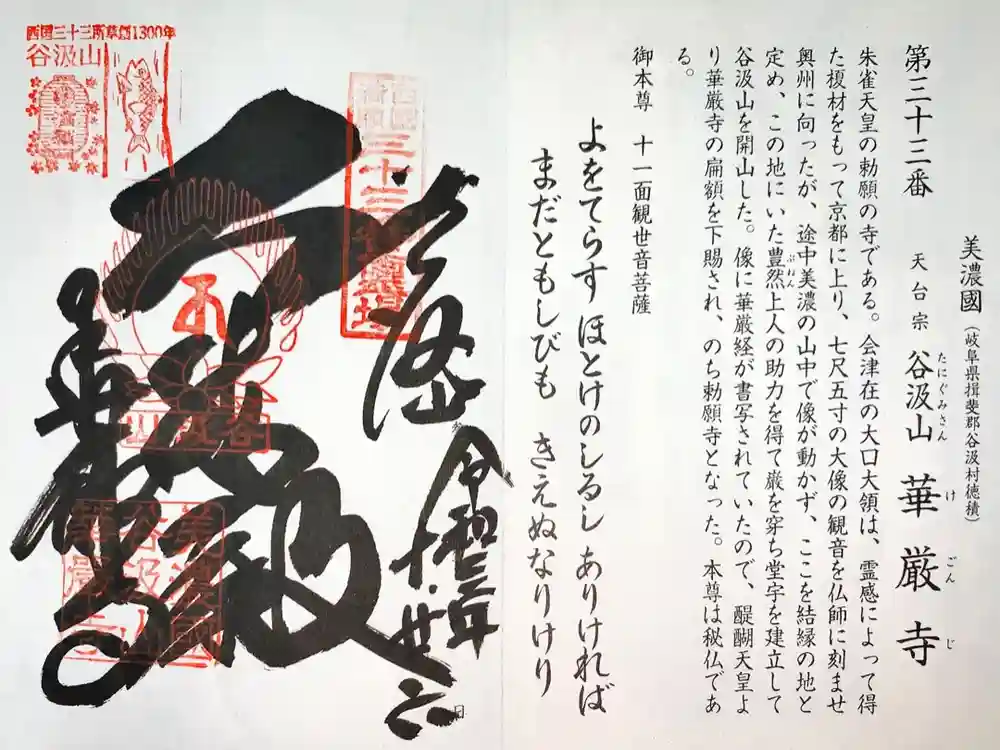 美濃國（岐阜県揖斐郡谷汲村徳積）
第三十三番　天台宗　谷汲山　華厳寺
たにぐみさん　けごんじ
朱雀天皇の勅願の寺である。会津在の大口大領は、霊感によって得
た榎材をもって京都に上り、七尺五寸の大像の観音を仏師に刻ませ
奥州に向ったが、途中美濃の山中で像が動かず、ここを結縁の地と
定め、この地にいた豊然上人の助力を得て巌を穿ち堂宇を建立して
ぶねん
谷汲山を開山した。像に華厳経が書写されていたので、醍醐天皇よ
り華厳寺の扁額を下賜され、のち勅願寺となった。本尊は秘仏であ
る。
御本尊　十一面観世音菩薩
よをてらす ほとけのしるし ありければ
まだともしびも きえぬなりけり
令和三年
十·廿六日
西国三十三所草創1300年
谷汲山
谷汲山
美濃國
谷汲山
華厳寺